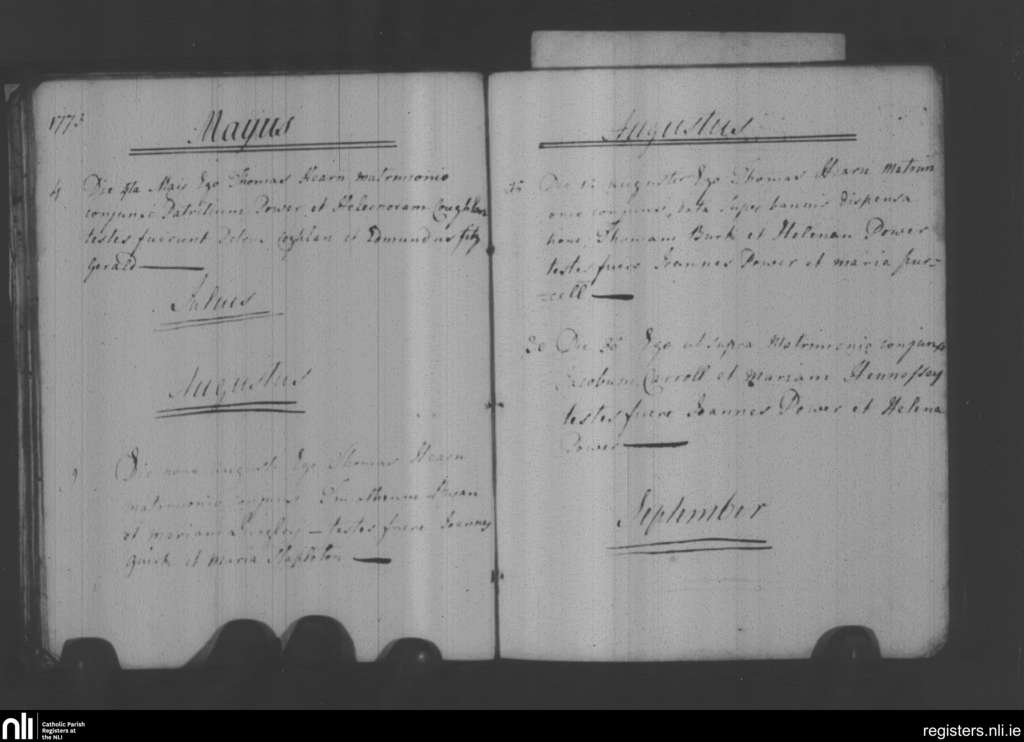 1773
Mayus
4 Die 4ta Maii Ego Thomas Hearn matrimonio
conjunxi Patritium Power et Heleonoram Coughlan
testes fuerunt Coghlan et Edmundus fitz
Gerald
Julius
Augustus
9 Die nona augusti Ego Thomas Hearn
matrimonio conjunxi Ryan
et mariam testes fuere Joannes
Quirk et maria Stapleton
Augustus
Die augusti Ego Thomas Hearn Matrim
onio conjunxi, data super bannis dispensa
tione, Thomam Burk et Helenam Power
testes fuere Joannes Power et maria pur=
=cell
Die Ego ut supra Matrimonio conjunxi
Jacobum Carroll et Mariam Hennessey
testes fuere Joannes Power et Helena
Power
September
nli
Catholic Parish
Registers at
the NLI
registers.nli.ie